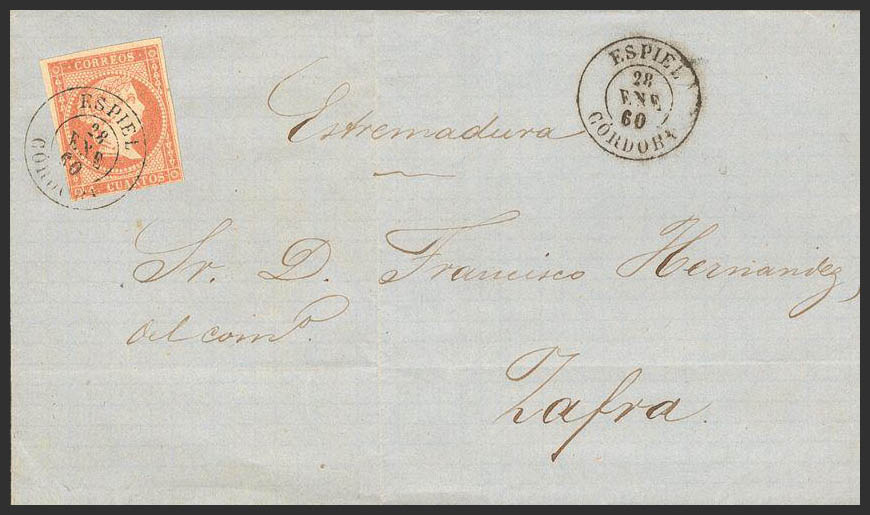 CORREOS
CUARTOS
ESPIEL
28
ENE
60
CÓRDOBA
ESPIEL
28
ENE
60
CÓRDOBA
Estremadura
Sr. D. Francisco Hernandez,
del comº.
Zafra.